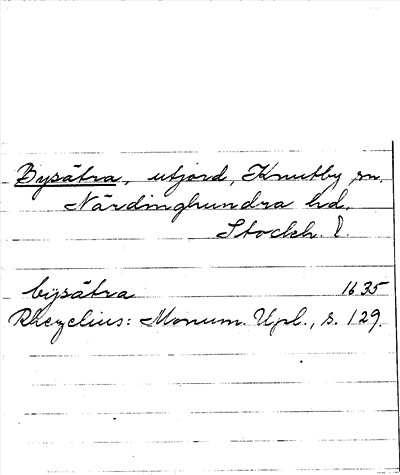 Bysätra, utjord, Knutby sn.
Närdinghundra hd.
Stockh. l.
bijsätra 1635
Rhezelius: Monum. Upl., s. 129.